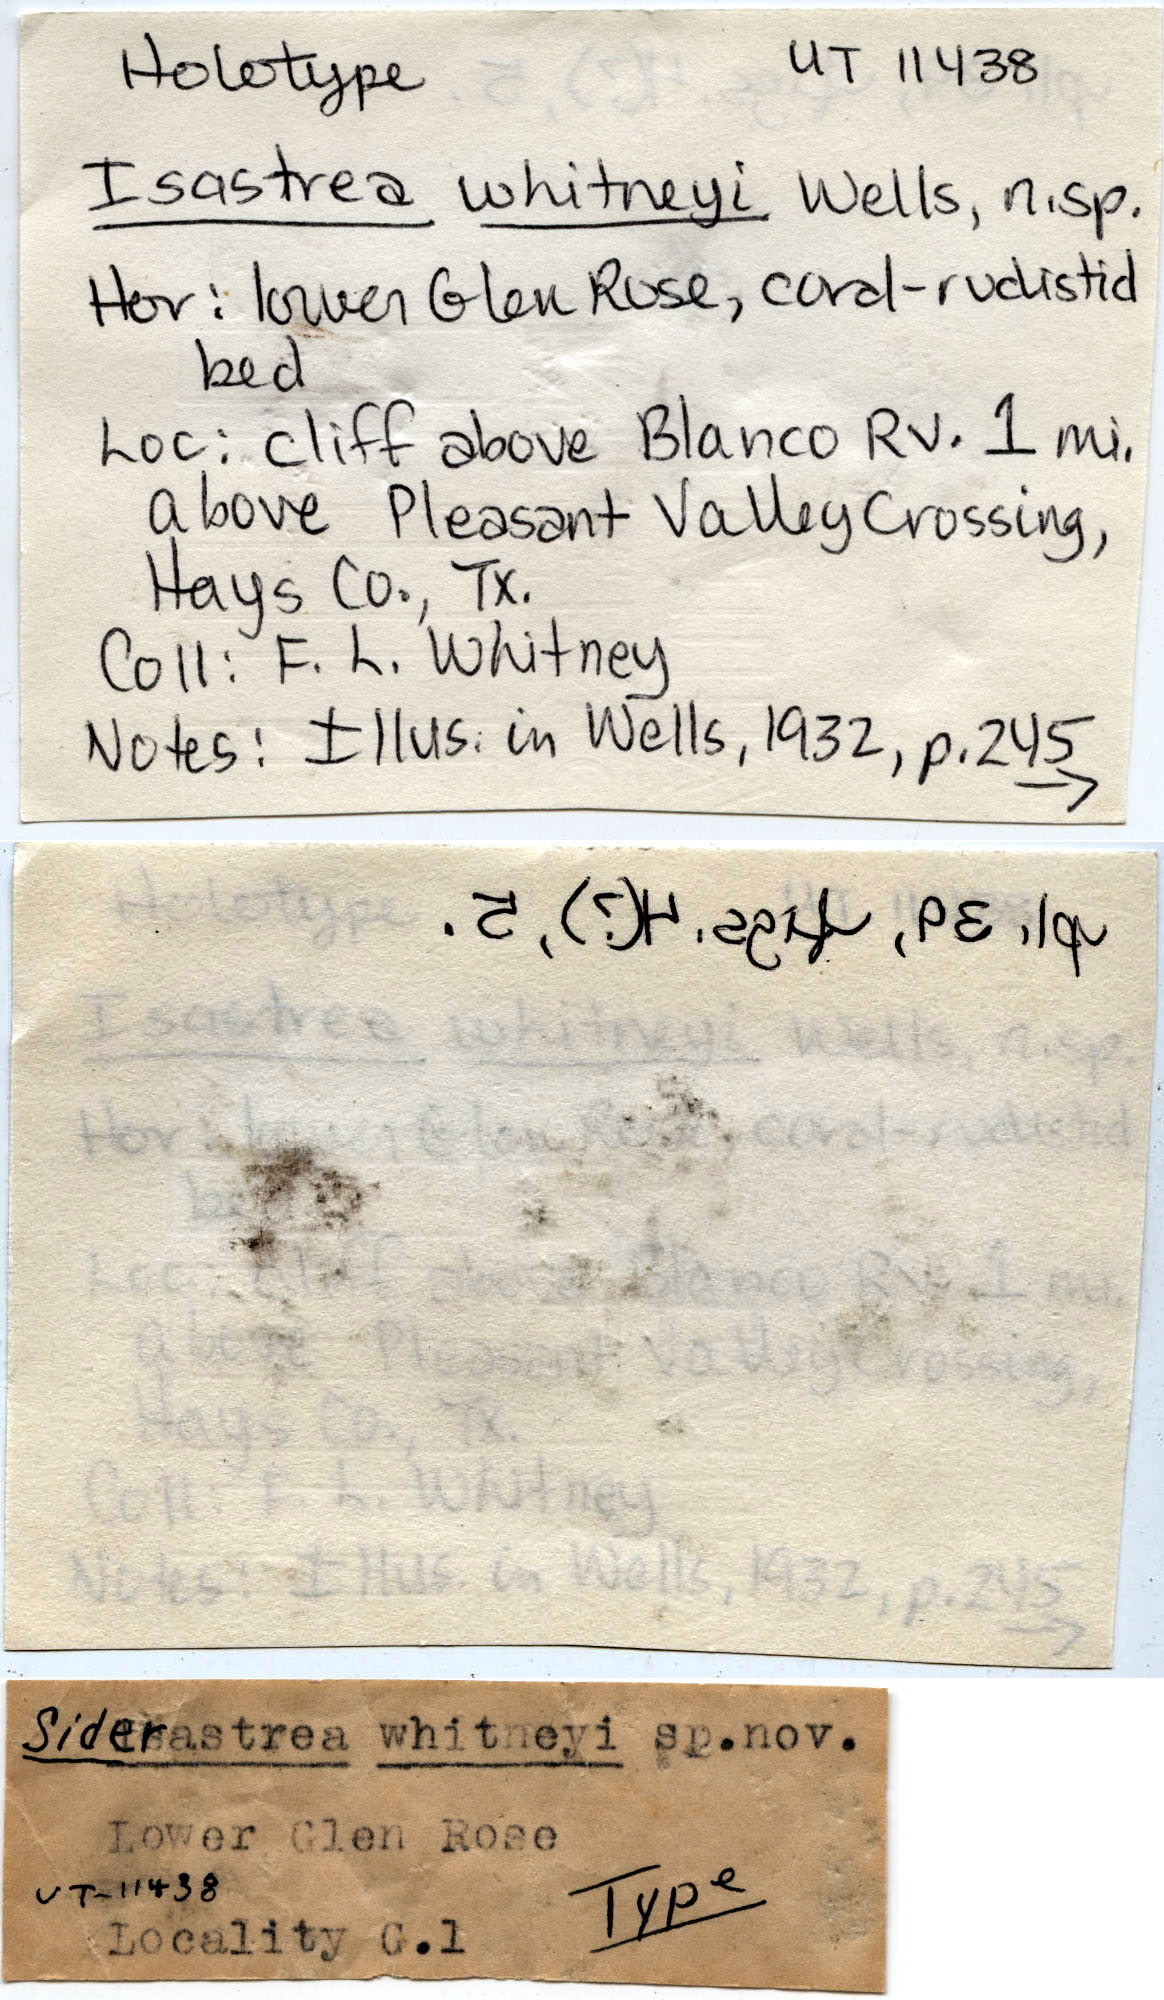 Holotype UT 11438
Isastrea whitneyi Wells, n.sp.
Hor: lower Glen Rose, coral-rudistid
bed
Loc: cliff above Blanco Rv. 1 mi.
above Pleasant Valley Crossing,
Hays Co., Tx.
Coll: F. L. Whitney
Notes: Illus. in Wells, 1932, p. 245
→
pl. 39, figs. 4(?), 5.
Siderastrea whitneyi sp.nov.
Lower Glen Rose
UT-11438
Type
Locality G.1